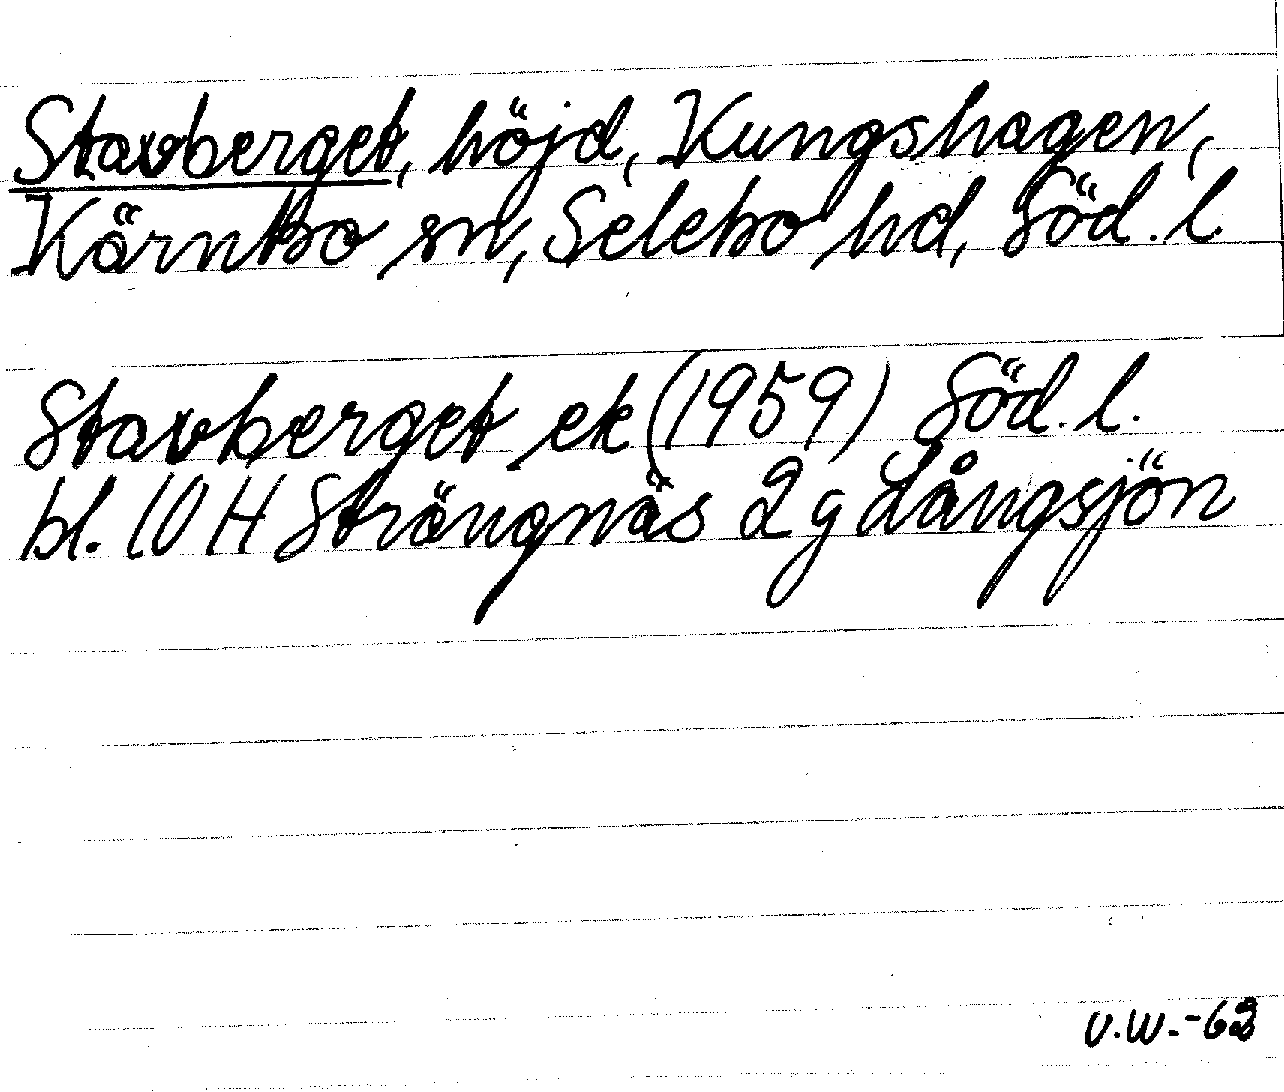 Stavberget, höjd, Kungshagen,
Kärnbo sn, Selebo hd, Söd. l.
Stavberget ek (1959) Söd. l.
bl. 10 H Strängnäs 2 g Långsjön
V.W.-63